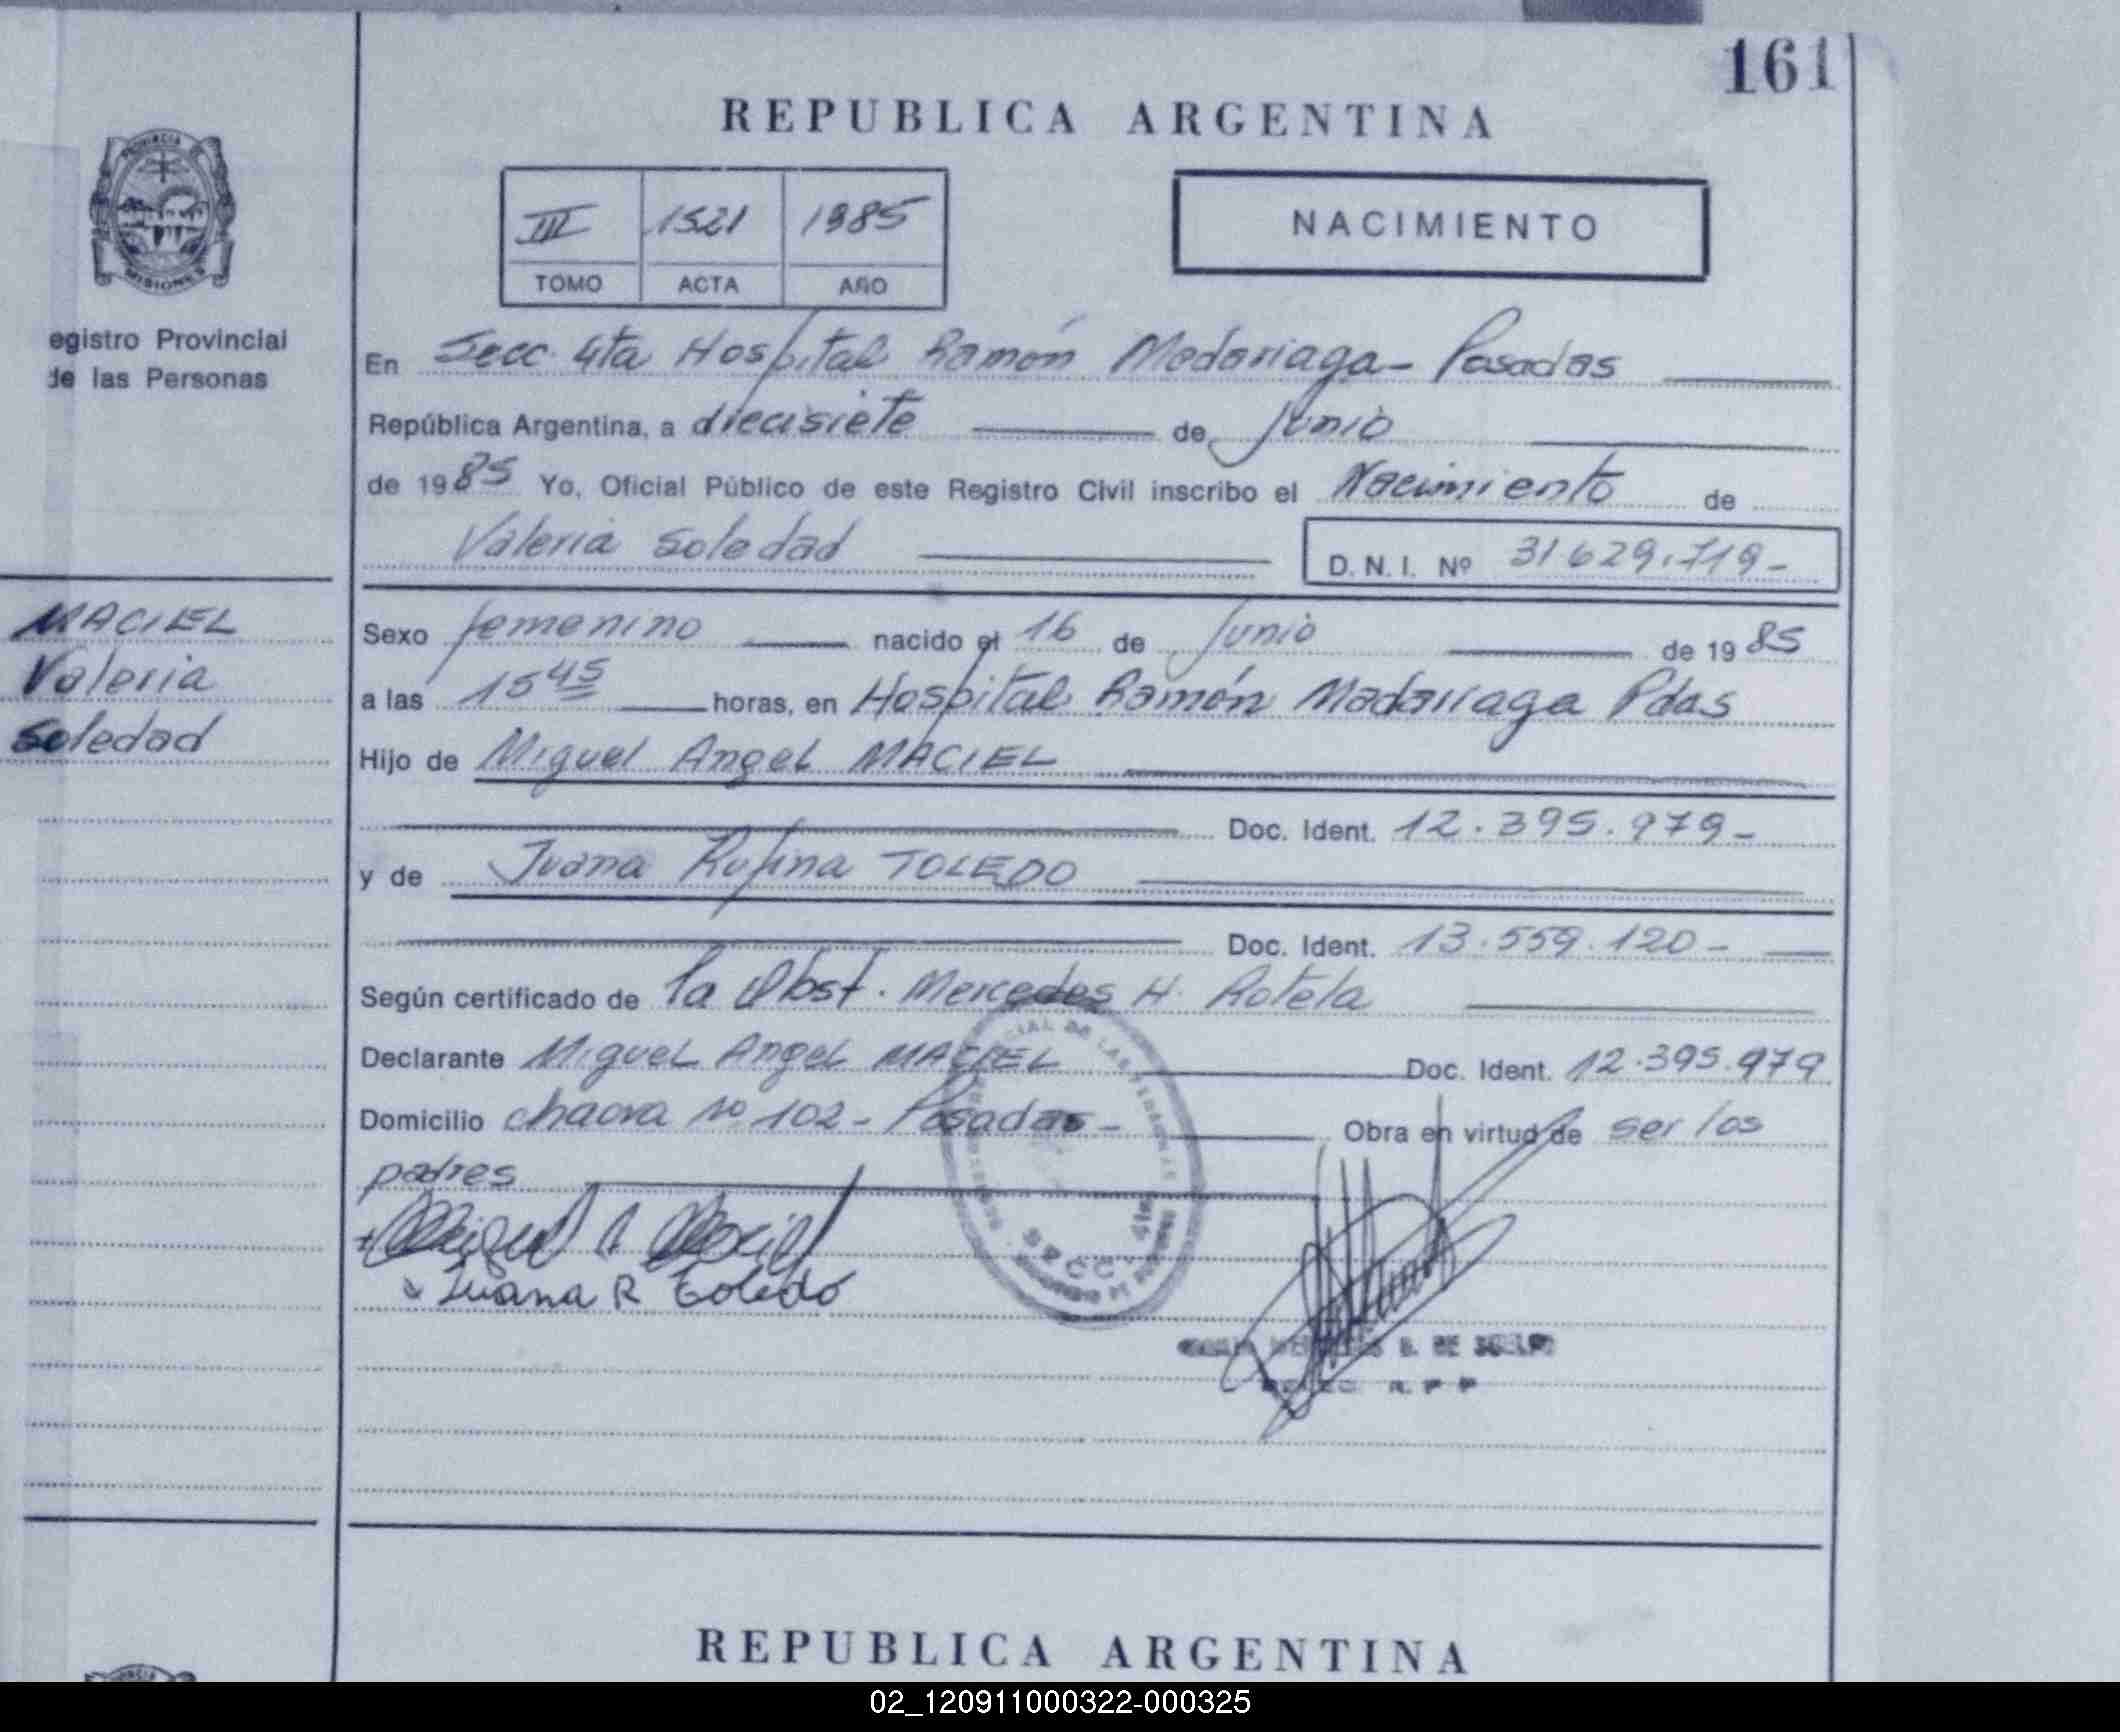 161
REPUBLICA ARGENTINA
III 1521 1985
TOMO ACTA AÑO
NACIMIENTO
PROVINCIA DE
MISIONES
egistro Provincial
de las Personas
En Secc. 4ta Hospital Ramón Madariaga - Posadas
República Argentina, a diecisiete de Junio
de 1985 Yo, Oficial Público de este Registro Civil inscribo el Nacimiento de
Valeria Soledad
D.N.I. Nº 31629.719-
MACIEL
Valeria
Soledad
Sexo femenino nacido el 16 de Junio de 1985
a las 15 45 horas, en Hospital Ramón Madariaga Pdas
Hijo de Miguel Angel MACIEL
Doc. Ident. 12.395.979-
y de Juana Rufina TOLEDO
Doc. Ident. 13.559.120-
Según certificado de la Obst. Mercedes H. Rotela
Declarante Miguel Angel MACIEL Doc. Ident. 12.395.979
Domicilio chacra Nº 102 - Posadas - Obra en virtud de ser los
padres
Miguel A Maciel
Juana R Toledo
DE LAS PERSONAS
SECC. 4ta
B. DE
R. P. P.
REPUBLICA ARGENTINA
02_120911000322-000325